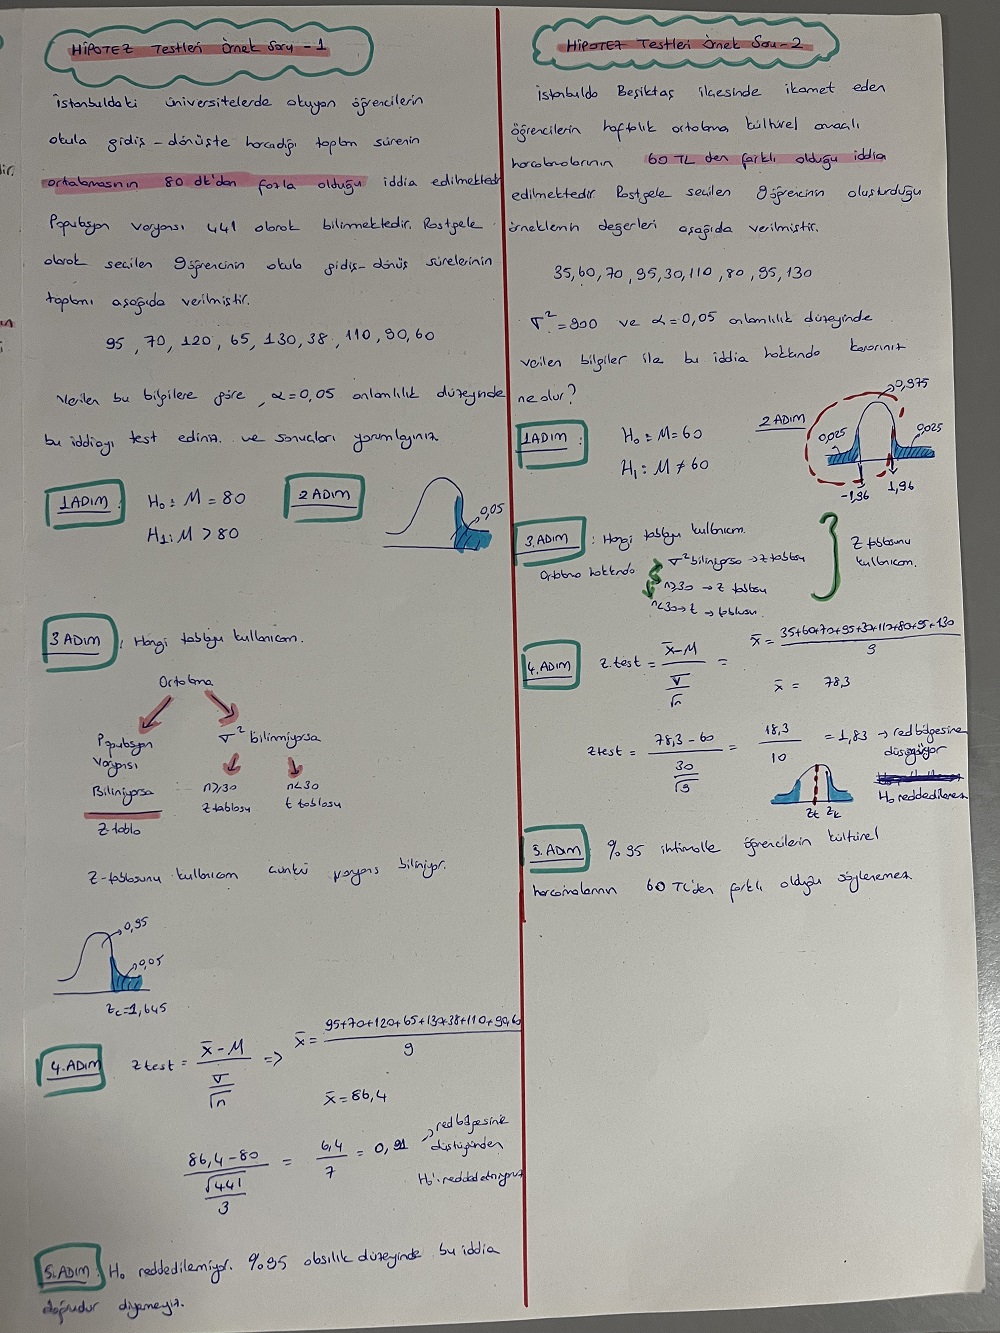 HİPOTEZ Testleri Örnek Soru - 1
İstanbuldaki üniversitelerde okuyan öğrencilerin
okula gidiş - dönüşte harcadığı toplam sürenin
ortalamasının 80 dk'dan fazla olduğu iddia edilmektedir
Popülasyon varyansı 441 olarak bilinmektedir. Rastgele
olarak seçilen 9 öğrencinin okula gidiş - dönüş sürelerinin
toplamı aşağıda verilmiştir.
95, 70, 120, 65, 130, 38, 110, 90, 60
Verilen bu bilgilere göre, α=0,05 anlamlılık düzeyinde
bu iddiayı test ediniz. ve sonuçları yorumlayınız.
1ADIM : H₀ : M = 80
H₁ : M > 80
2 ADIM
0,05
3 ADIM : Hangi tabloyu kullanıcam.
Ortalama
Popülasyon varyansı Biliniyorsa
Z tablo
σ² bilinmiyorsa
n≥30 z tablosu
n<30 t tablosu
Z-tablosunu kullanıcam çünkü varyans biliniyor.
0,95
0,05
Zc=1,645
4.ADIM Z test = x̄ - M / σ/√n => x̄ = 95+70+120+65+130+38+110+90,6 / 9
x̄ = 86,4
86,4 - 80 / √441/3 = 6,4/7 = 0,91 → red bölgesine
düştüğünden
H₀'ı reddedemiyoruz
5.ADIM : H₀ reddedilemiyor. %95 olasılık düzeyinde bu iddia
doğrudur diyemeyiz.
HİPOTEZ Testleri Örnek Soru - 2
İstanbulda Beşiktaş ilçesinde ikamet eden
öğrencilerin haftalık ortalama kültürel amaçlı
harcamalarının 60 TL den farklı olduğu iddia
edilmektedir. Rastgele seçilen 9 öğrencinin oluşturduğu
örneklemin değerleri aşağıda verilmiştir.
35, 60, 70, 95, 30, 110, 80, 95, 130
σ² = 900 ve α = 0,05 anlamlılık düzeyinde
verilen bilgiler ile bu iddia hakkında kararınız
ne olur?
1ADIM : H₀ : M = 60
H₁ : M ≠ 60
2 ADIM
0,975
0,025
0,025
-1,96
1,96
3.ADIM : Hangi tabloyu kullanıcam.
Ortalama hakkında
σ² biliniyorsa → z tablosu
n≥30 → z tablosu
n<30 → t → tablosu
Z tablosunu
kullanıcam.
4.ADIM Z test = x̄ - M / σ/√n = x̄ = 35+60+70+95+30+110+80+95+130 / 9
x̄ = 78,3
Z test = 78,3 - 60 / 30/√9 = 18,3/10 = 1,83 → red bölgesine
düşmüyor
H₀ reddedilemez
Zt Zk
5.ADIM %95 ihtimalle öğrencilerin kültürel
harcamalarının 60 TL'den farklı olduğu söylenemez